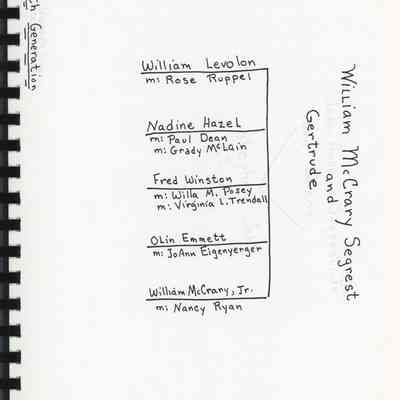 Generation
William McCrary Segrest
and
Gertrude
William Levolon
m: Rose Ruppel
Nadine Hazel
m: Paul Dean
m: Grady McLain
Fred Winston
m: Willa M. Posey
m: Virginia L. Trendall
Olin Emmett
m: JoAnn Eigenyerger
William McCrary, Jr.
m: Nancy Ryan